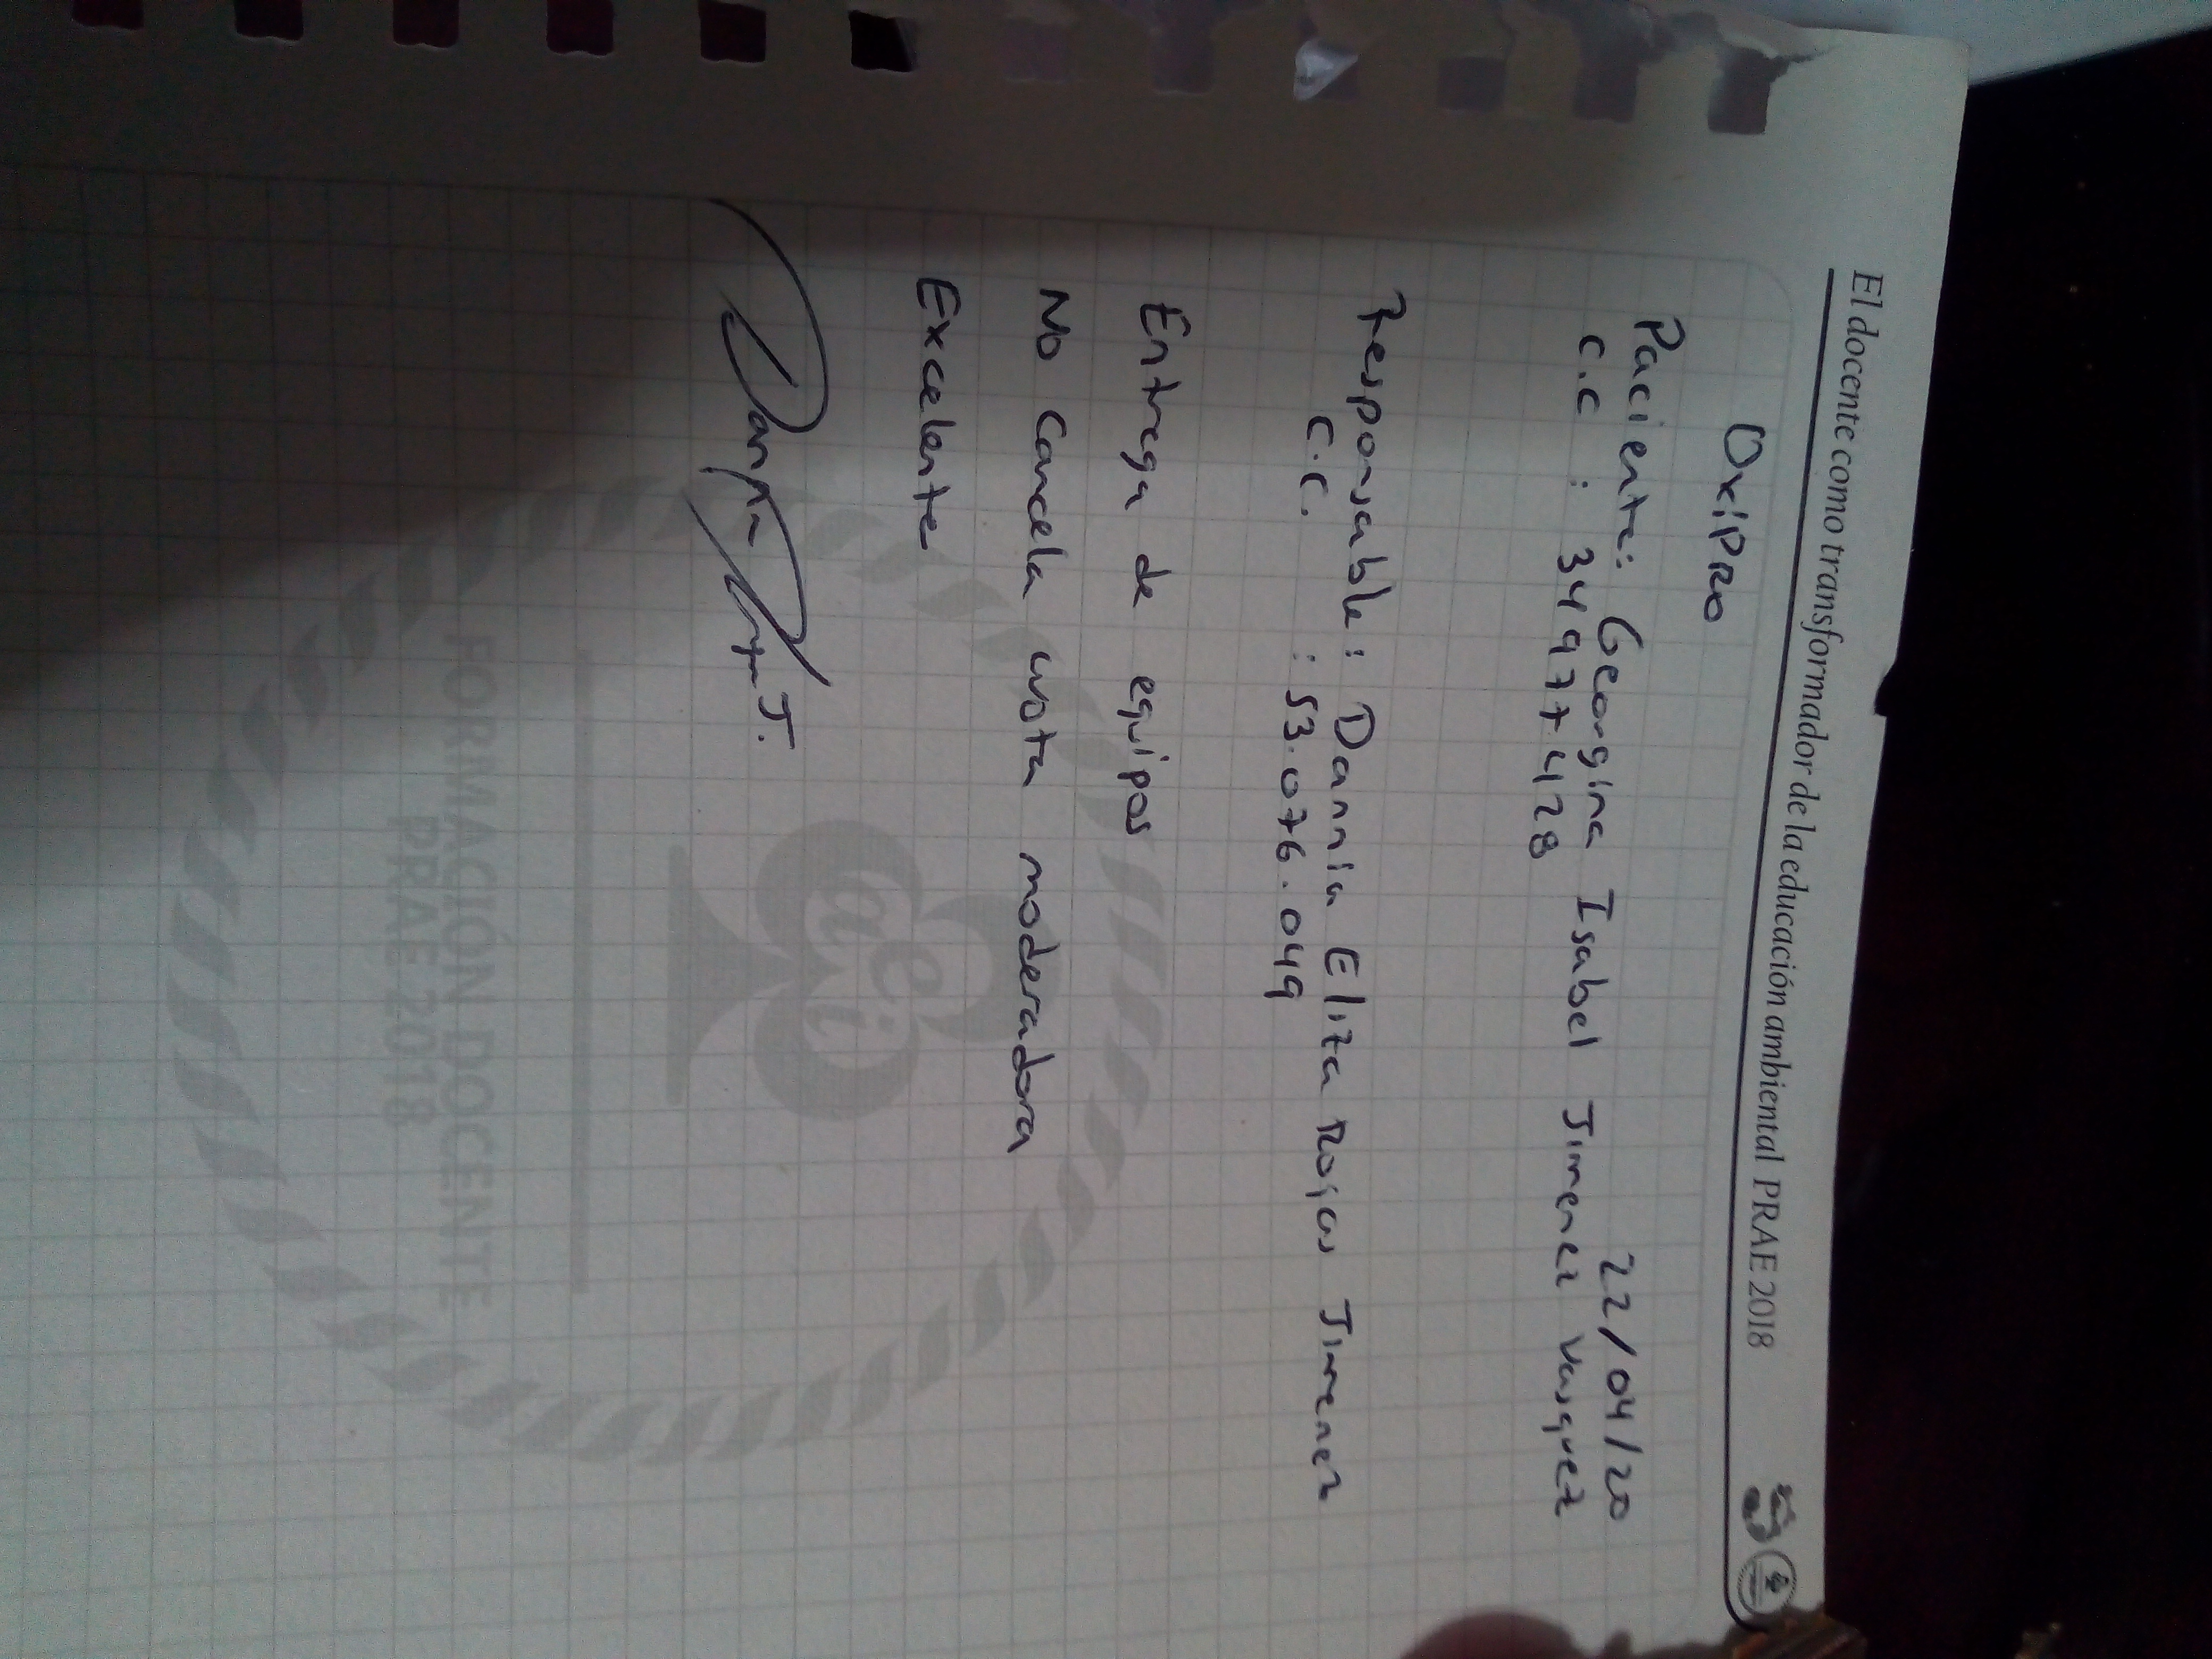 El docente como transformador de la educación ambiental PRAE 2018
OxiPRO
22/04/20
Paciente: Georgina Isabel Jimenez Vasquez
C.C : 34977.428
Responsable: Dannia Eliza Rojas Jimenez
C.C. : 53.076.049
Entrega de equipos
No Cancela cuota moderadora
Excelente
aei
FORMACIÓN DOCENTE
PRAE 2018